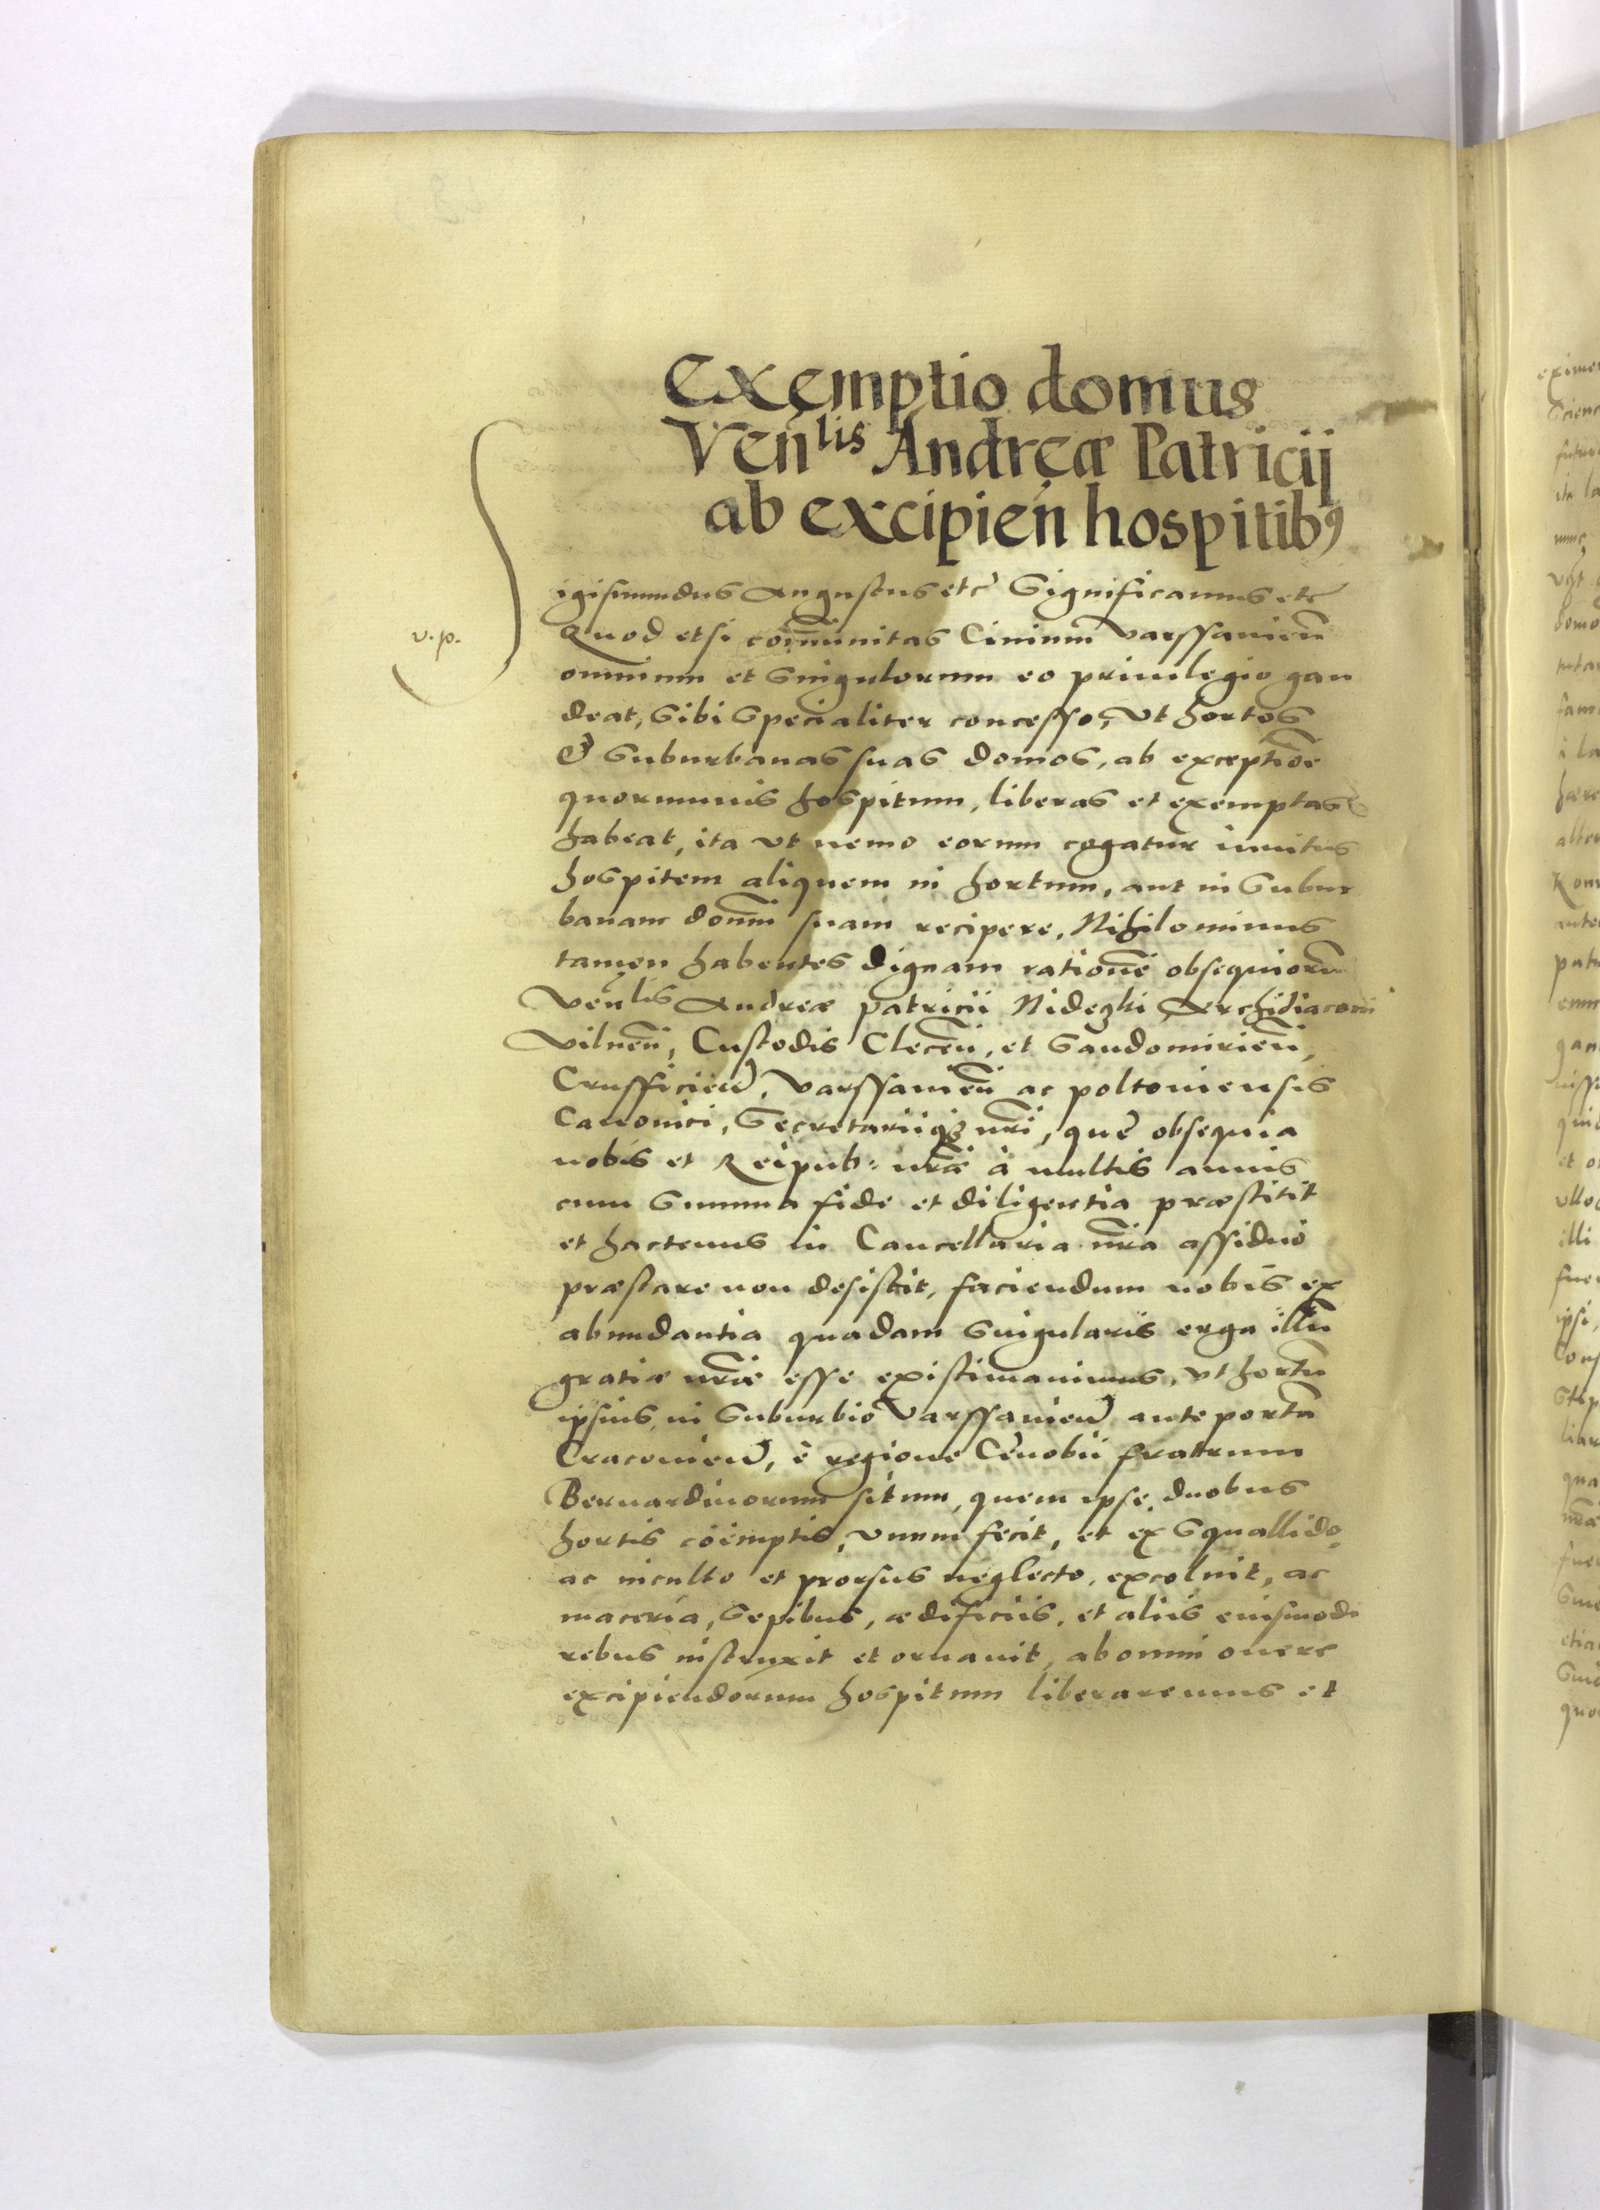 Exemptio domus
Ven̄lis Andreæ Patricij
ab excipien̄ hospitibꝰ
v. p.
Sigismundus Augustus etc̃ Significamus etc̃
Quod etsi com̄unitas Ciuium Varssauien̄
omnium et Singulorum eo priuilegio gau
deat, Sibi Specialiter concesso, Vt hortos
& Suburbanas suas domos, ab exceptiōe
quorumuis hospitum, liberas et exemptas
habeat, ita vt nemo eorum cogatur inuitus
hospitem aliquem in hortum, aut in Subur
banam domū suam recipere, Nihilominus
tamen habentes dignam rationē obsequiorū
Ven̄lis Andreæ Patricii Nideczki Archidiaconi
Vilnen̄, Custodis Clecen̄, et Sandomirien̄,
Crussficien̄, Varssauien̄ ac Poltouiensis
Canonici, Secretariiqȝ nr̄i, quę obsequia
nobis et Reipub: nr̄æ à multis annis
cum Summa fide et diligentia præstitit
et hactenus in Cancellaria nr̄a assiduo
præstare non desistit, faciendum nobis ex
abundantia quadam Singularis erga illū
gratiæ nr̄æ esse existimauimus, vt hortū
ipsius in Suburbio Varssauien̄ ante portā
Cracouien̄, è regione Cęnobii fratrum
Bernardinorum situm, quem ipse, duobus
hortis coëmptis, vnum fecit, et ex Squallido,
ac inculto et prorsus neglecto, excoluit, ac
maceria, Sepibus, ædificiis, et aliis eiusmodi
rebus instruxit et ornauit, ab omni onere
excipiendorum hospitum liberaremus et